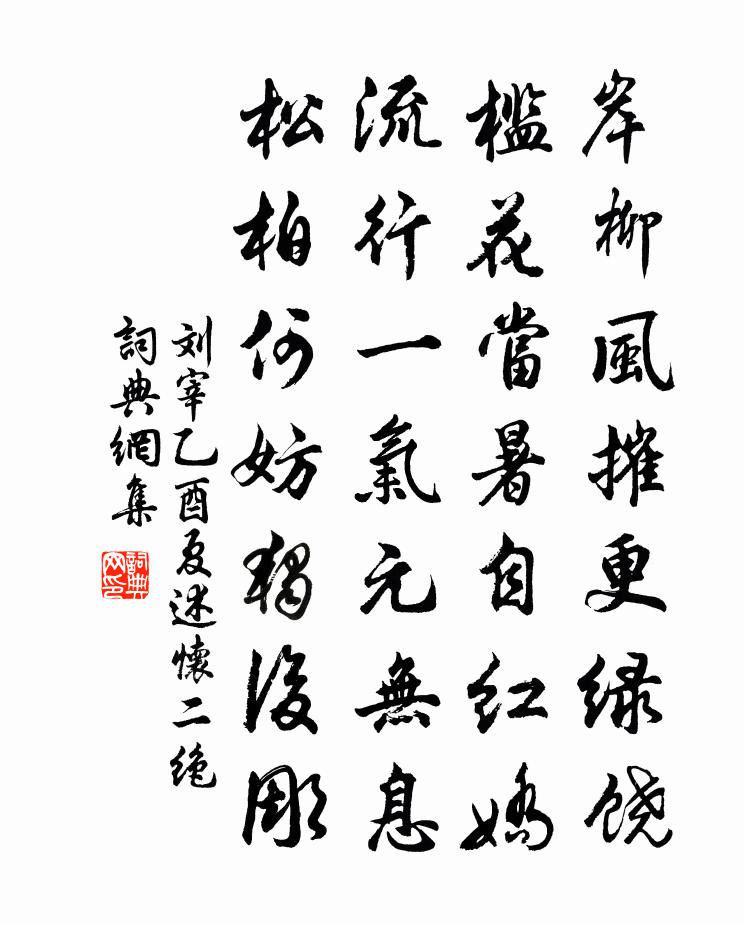 岸柳風摧更緑饒
檻花當暑自紅嬌
流行一氣元無息
松柏何妨獨後彫
刘宰乙酉夏述懷二绝
詞典網集
詞典网印